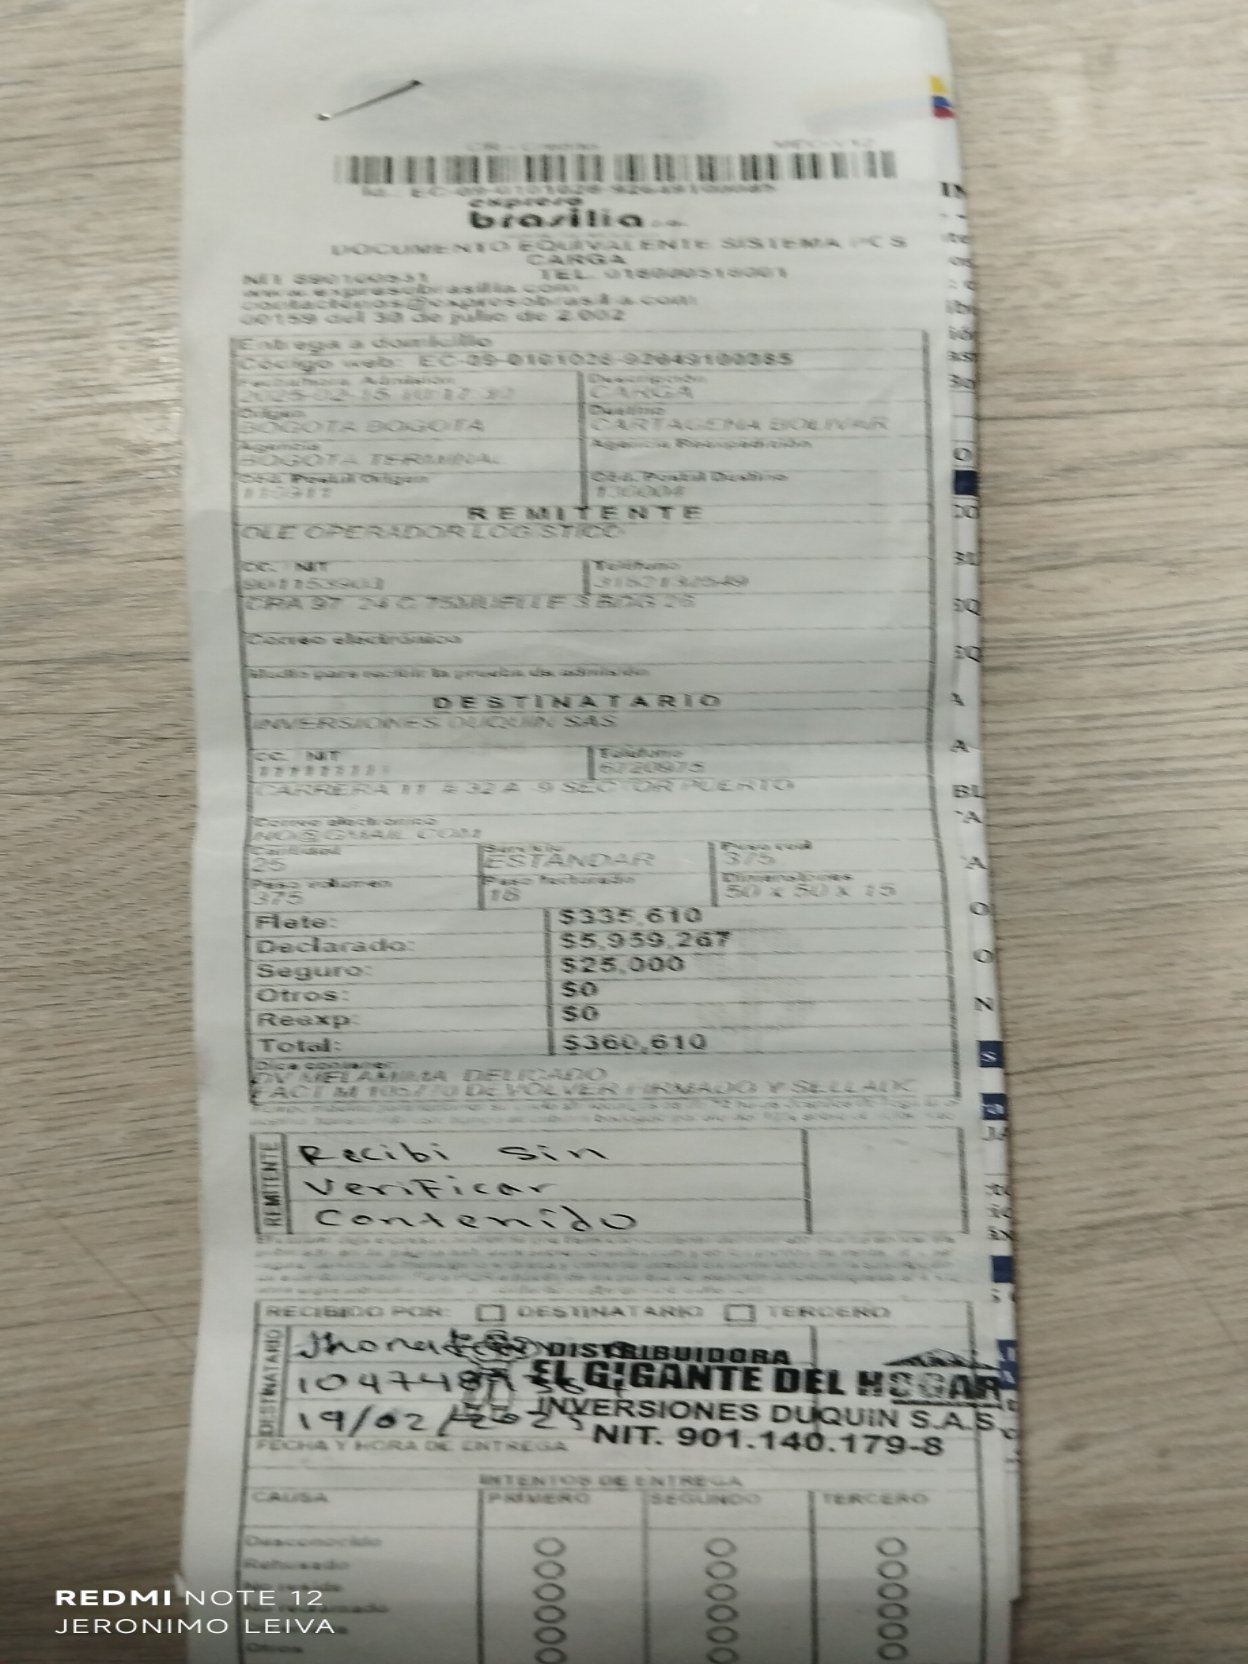 CR - Credito
expreso
brasilia s.a.
DOCUMENTO EQUIVALENTE SISTEMA PCS
CARGA
NIT 890100531 TEL. 018000518001
www.expresobrasilia.com
contactenos@expresobrasilia.com
00159 del 30 de julio de 2.002
Entrega a domicilio
Código web: EC-09-0101026-92649100385
Fecha/hora Admisión Descripción
2025-02-15 CARGA
Origen Destino
BOGOTA BOGOTA CARTAGENA BOLIVAR
Agencia Agencia Reexpedición
BOGOTA TERMINAL
Cód. Postal Origen Cód. Postal Destino
REMITENTE
OLE OPERADOR LOGISTICO
CC. NIT Teléfono
901153903 3152132549
CRA 97 24 C 75MUELLE 3 BDG 26
Correo electrónico
Medio para recibir la prueba de admisión
DESTINATARIO
INVERSIONES DUQUIN SAS
CC. NIT Teléfono
6720975
CARRERA 11 # 32 A -9 SECTOR PUERTO
Correo electrónico
NO@GMAIL.COM
Cantidad Servicio Peso real
25 ESTANDAR 375
Peso volumen Peso facturado Dimensiones
375 18 50 x 50 x 15
Flete: $335,610
Declarado: $5,959,267
Seguro: $25,000
Otros: $0
Reexp: $0
Total: $360,610
Dice contener
DV MELAMIMA DELICADO
FACT M 105770 DEVOLVER FIRMADO Y SELLADO
REMITENTE
Recibi sin
Verificar
Contenido
RECIBIDO POR: DESTINATARIO TERCERO
DESTINATARIO
DISTRIBUIDORA
EL GIGANTE DEL HOGAR
19/02/2025
INVERSIONES DUQUIN S.A.S.
NIT. 901.140.179-8
FECHA Y HORA DE ENTREGA
INTENTOS DE ENTREGA
CAUSA PRIMERO SEGUNDO TERCERO
Desconocido
Rehusado
Otros
REDMI NOTE 12
JERONIMO LEIVA